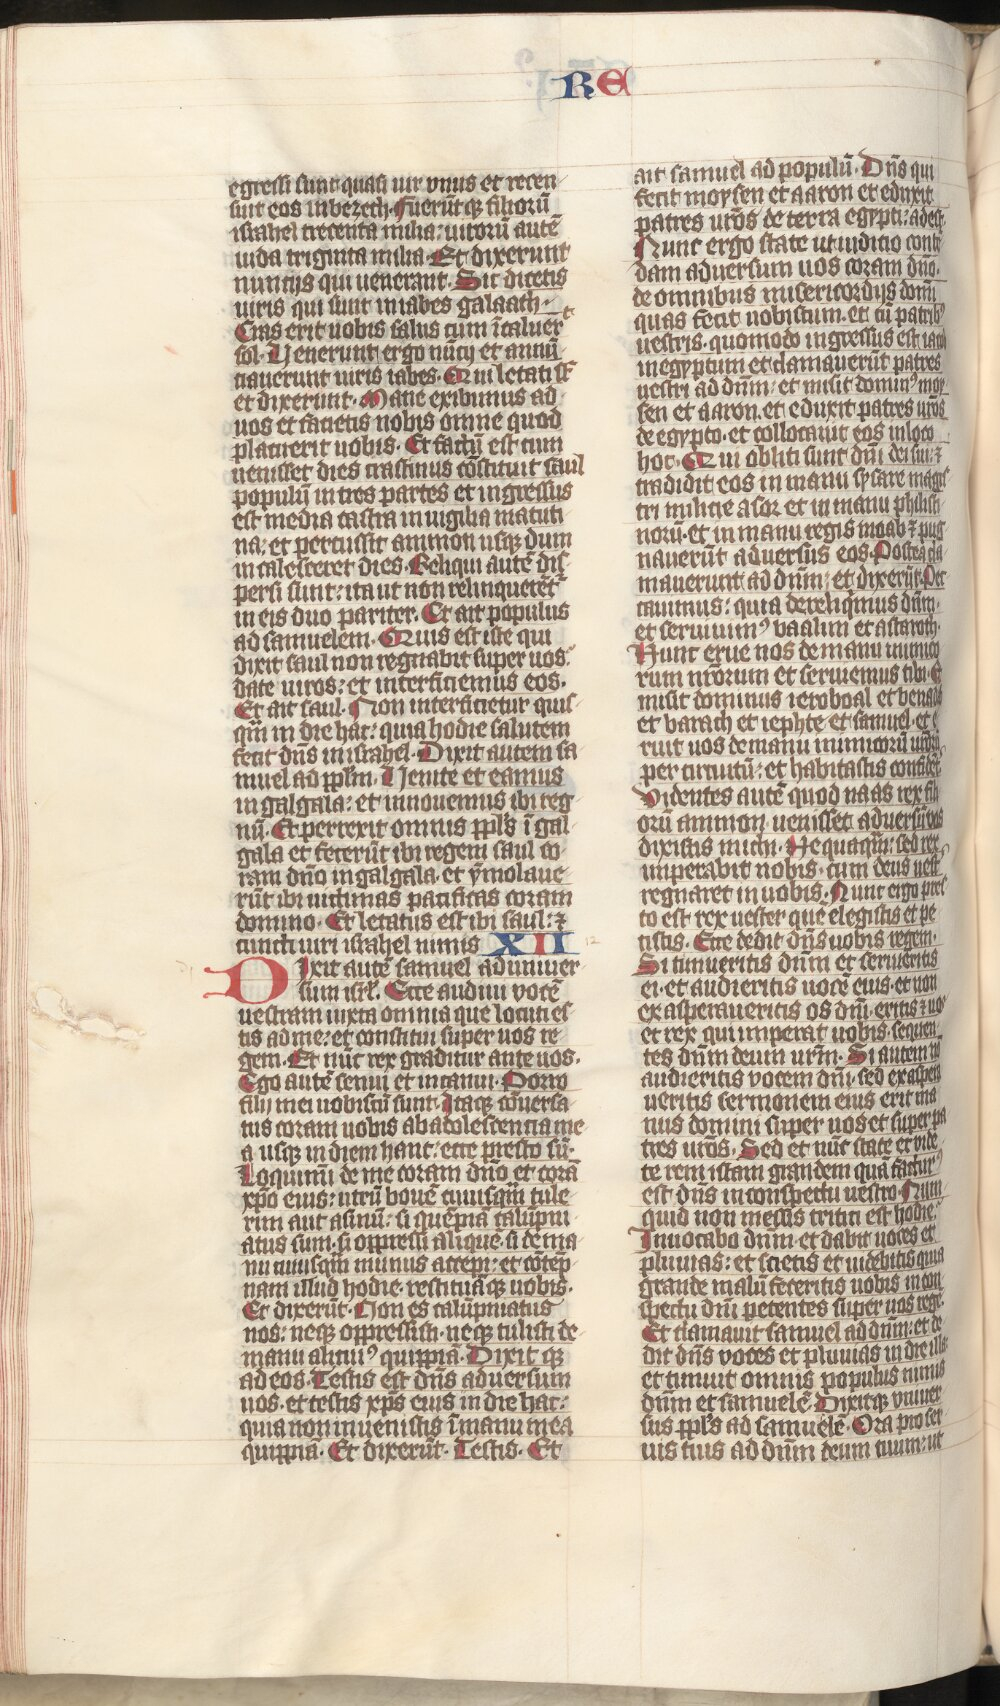 RE
egressi sunt quasi uir vnus et recen
suit eos in bezech. Fuerūt qȝ filiorū
israhel trecenta milia: uirorū autē
iuda triginta milia. Et dixerunt
nuncijs qui uenerant. Sic dicetis
uiris qui sunt in iabes galaath.
Cras erit uobis salus cum īcaluerͭ
sol. Uenerunt ergo nūcij et annū
ciauerunt uiris iabes. Qui letati sͭ
et dixerunt. Mane exibimus ad
uos et facietis nobis omne quod
placuerit uobis. Et factū est cum
uenisset dies crastinus cōstituit saul
populū in tres partes et ingressus
est media castra in uigilia matuti
na: et percussit ammon usqȝ dum
incalesceret dies. Reliqui autē dis
persi sunt: ita ut non relinquerētͬ
in eis duo pariter. Et ait populus
ad samuelem. Quis est iste qui
dixit saul non regnabit super uos.
date uiros: et interficiemus eos.
Et ait saul. Non interficietur quis
qm̄ in die hac: quia hodie salutem
fecit dn̄s in israhel. Dixit autem sa
muel ad ppl̄m. Uenite et eamus
in galgala: et innouemus ibi reg
nū. Et perrexit omnis ppl̄s ī gal
gala et fecerūt ibi regem saul co
ram dn̄o in galgala. et ymolaue
rūt ibi uictimas pacificas coram
domino. Et letatus est ibi saul: ⁊
cuncti uiri israhel nimis XII 12
Dixit autē samuel ad uniuer
sum isrl̄. Ecce audiui vocē
uestram iuxta omnia que locuti es
tis ad me: et constitui super uos re
gem. Et nūc rex graditur ante uos.
Ego autē senui et incanui. Porro
filij mei uobiscū sunt. Itaqȝ cōuersa
tus coram uobis ab adolescentia me
a usqȝ in diem hanc: ecce presto sū.
Loquimī de me coram dn̄o et corā
xp̄o eius: utrū bouē cuiusqm̄ tule
rim aut asinū: si quēpiā calūpni
atus sum. si oppressi aliquē. si de ma
nu cuiusqm̄ munus accepi: et cōtēp
nam illud hodie. restituāqȝ uobis.
Et dixerūt. Non es calūpniatus
nos: neqȝ oppressisti. neqȝ tulisti de
manu alicuiꝰ quippiā. Dixit qȝ
ad eos. Testis est dn̄s aduersum
uos. et testis xp̄s eius in die hac:
quia non inuenistis ī manu mea
quippiā. Et dixerūt. Testis. Et
ait samuel ad populū. Dn̄s qui
fecit moysen et aaron et eduxit
patres ur̄os de terra egypti: adest.
Nunc ergo state ut iudicio contē
dam aduersum uos coram dn̄o.
de omnibus misericordijs domī
quas fecit uobiscum. et cū patribꝰ
uestris. quomodo ingressus est iacob
in egyptum et clamauerūt patres
uestri ad dn̄m: et misit dominꝰ moy
sen et aaron. et eduxit patres ur̄os
de egypto. et collocauit eos in loco
hoc. Qui obliti sunt dn̄i dei sui: ⁊
tradidit eos in manu sysare magis
tri milicie asor et in manu philisti
norū. et in manu regis moab ⁊ pug
nauerūt aduersus eos. Postea cla
mauerunt ad dn̄m: et dixerūt. Pec
cauimus: quia dereliqimus dn̄m.
et seruiuimꝰ baalim et astaroth.
Nunc erue nos de manu inimico
rum nr̄orum et seruiemus tibi. Et
misit dominus ieroboal et benadab
et barach et iephte et samuel. et e
ruit uos de manu inimicorū ur̄orū
per circuitū: et habitastis confidēt̄
Videntes autē quod naas rex fili
orū ammon uenisset aduersū uos
dixistis michi. Nequaqm̄: sed rex
imperabit nobis. cum deus uest̄
regnaret in uobis. Nunc ergo pres
to est rex uester quē elegistis et pe
tistis. Ecce dedit dn̄s uobis regem.
Si timueritis dn̄m et seruieritis
ei. et audieritis uocē eius. et non
exasperaueritis os dn̄i. eritis ⁊ uos
et rex qui imperat uobis. sequen
tes dn̄m deum ur̄m. Si autem nō
audieritis vocem dn̄i. sed exaspera
ueritis sermonem eius erit ma
nus domini super uos et super pa
tres ur̄os. Sed et nūc state et vide
te rem istam grandem quā facturꝰ
est dn̄s in conspectu uestro. Num
quid non messis tritici est hodie.
Inuocabo dn̄m. et dabit uoces et
pluuias: et scietis et uidebitis quia
grande malū feceritis uobis in con
spectu dn̄i petentes super uos regē.
Et clamauit samuel ad dn̄m: et de
dit dn̄s voces et pluuias in die illa
et timuit omnis populus nimis
dn̄m et samuelē. Dixitqȝ vniuer
sus ppl̄s ad samuelē. Ora pro ser
uis tuis ad dn̄m deum tuum: ut